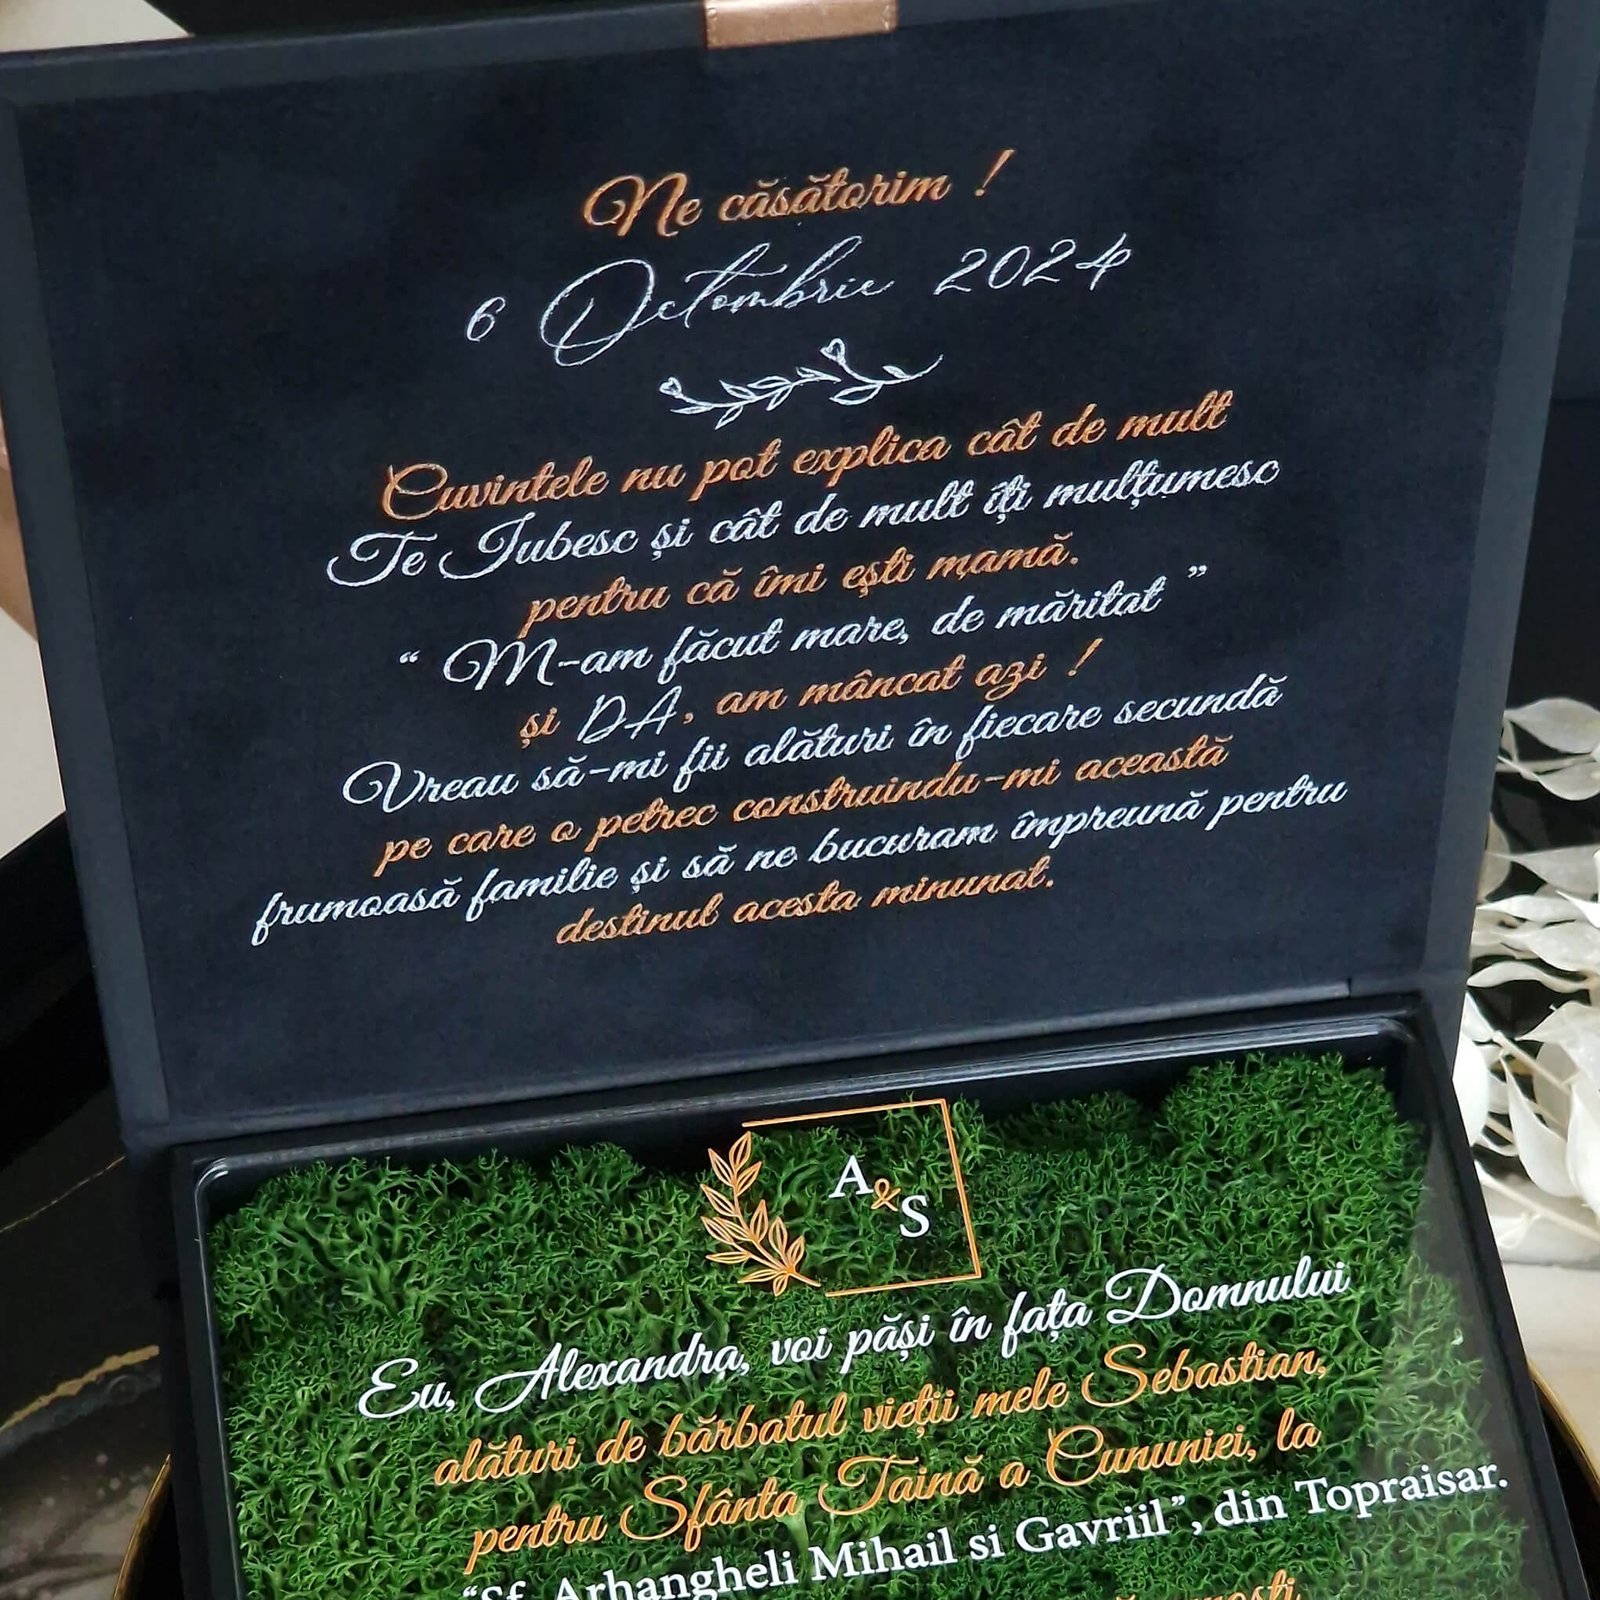 Ne căsătorim !
6 Octombrie 2024
Cuvintele nu pot explica cât de mult
Te Iubesc și cât de mult îți mulțumesc
pentru că îmi ești mamă.
“ M-am făcut mare, de măritat ”
și DA, am mâncat azi !
Vreau să-mi fii alături în fiecare secundă
pe care o petrec construindu-mi această
frumoasă familie și să ne bucuram împreună pentru
destinul acesta minunat.
A
&
S
Eu, Alexandra, voi păși în fața Domnului
alături de bărbatul vieții mele Sebastian,
pentru Sfânta Taină a Cununiei, la
“Sf. Arhangheli Mihail si Gavriil”, din Topraisar.